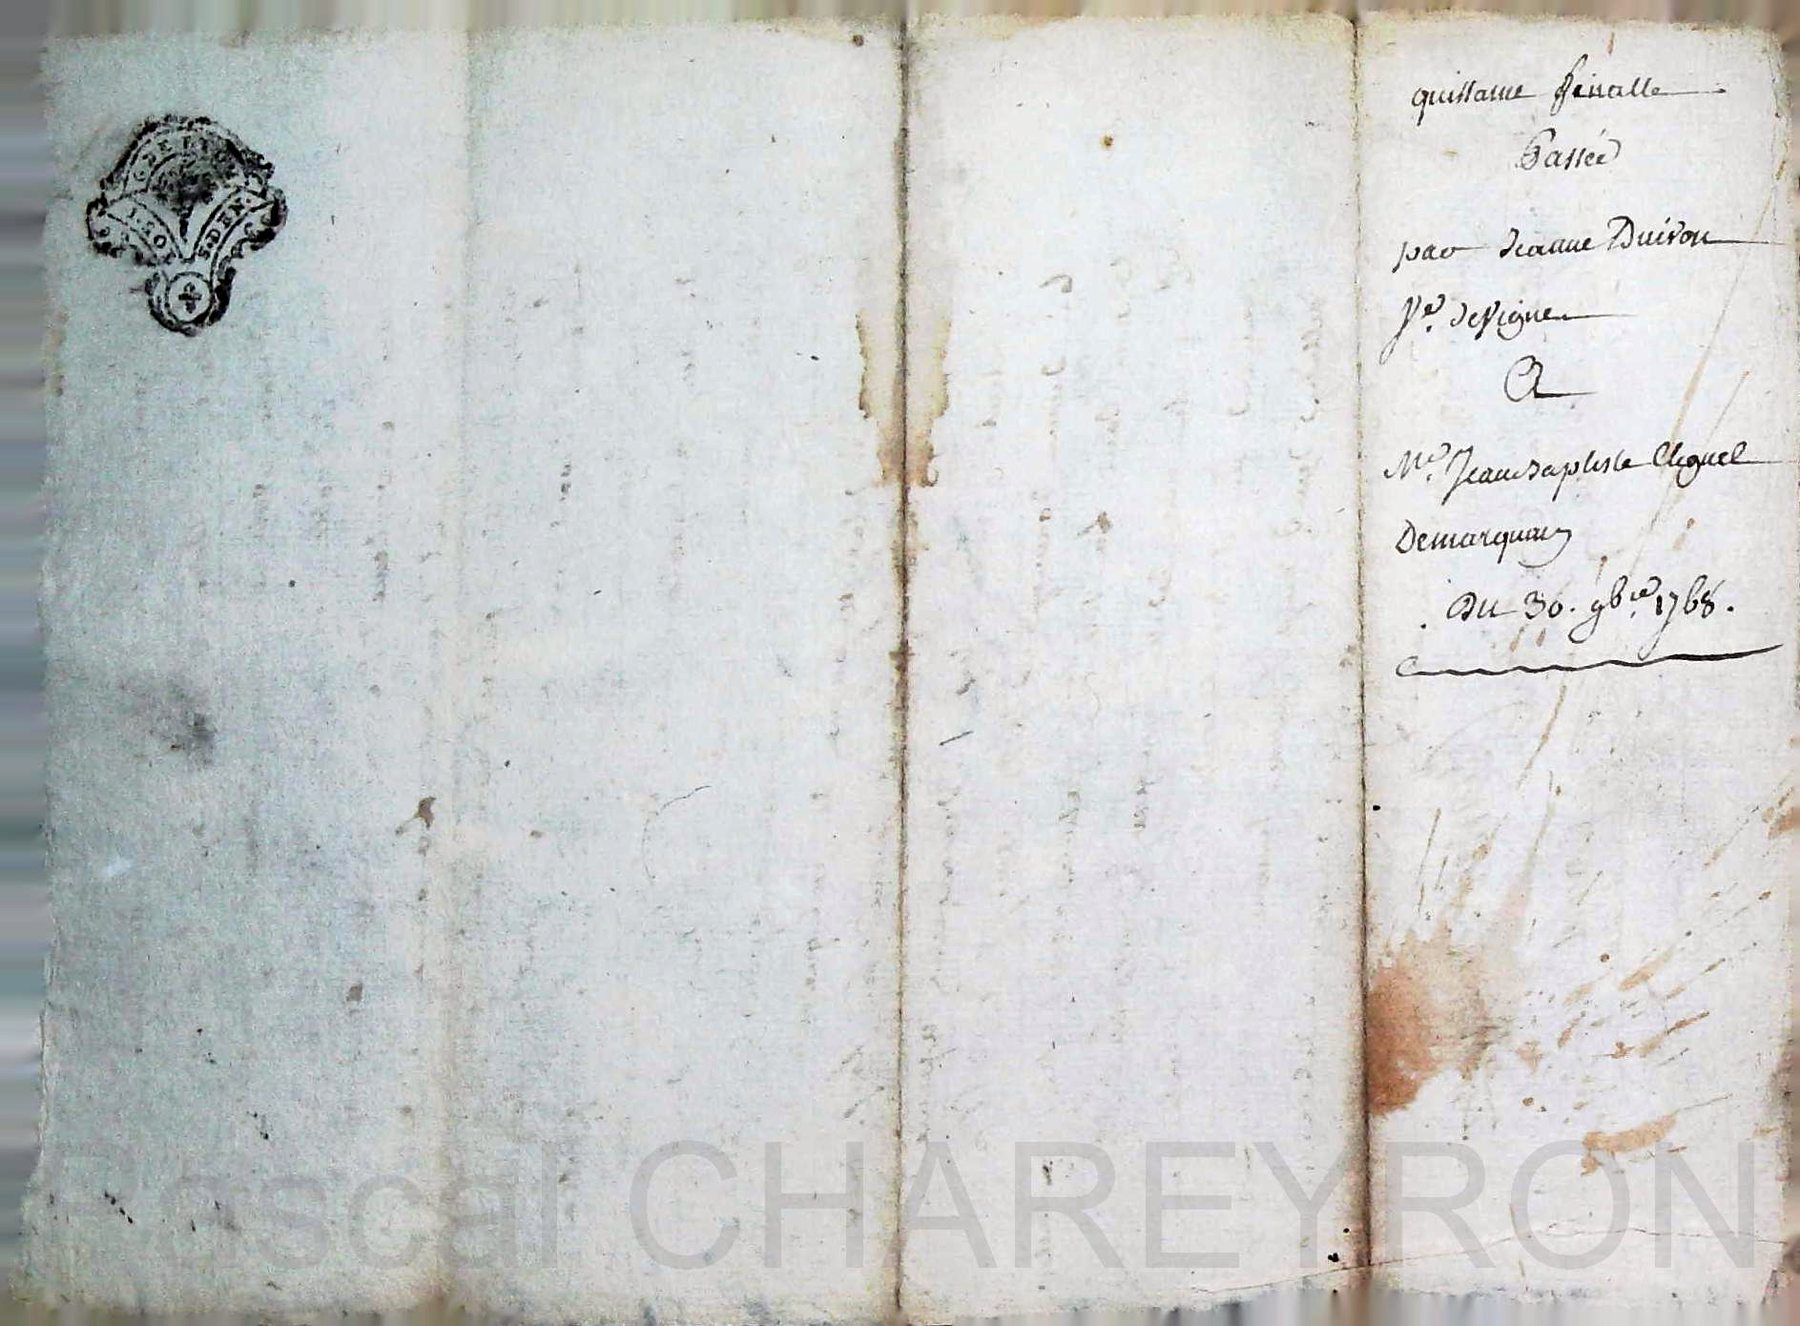 quittance finalle
Passée
par Jeanne Duivon
Ve. deVigne
A
Me. Jean baptiste Cliquel
Demarquay
Du 30. 9bre. 1768.
1. SO
S. DEN.
Pascal CHAREYRON